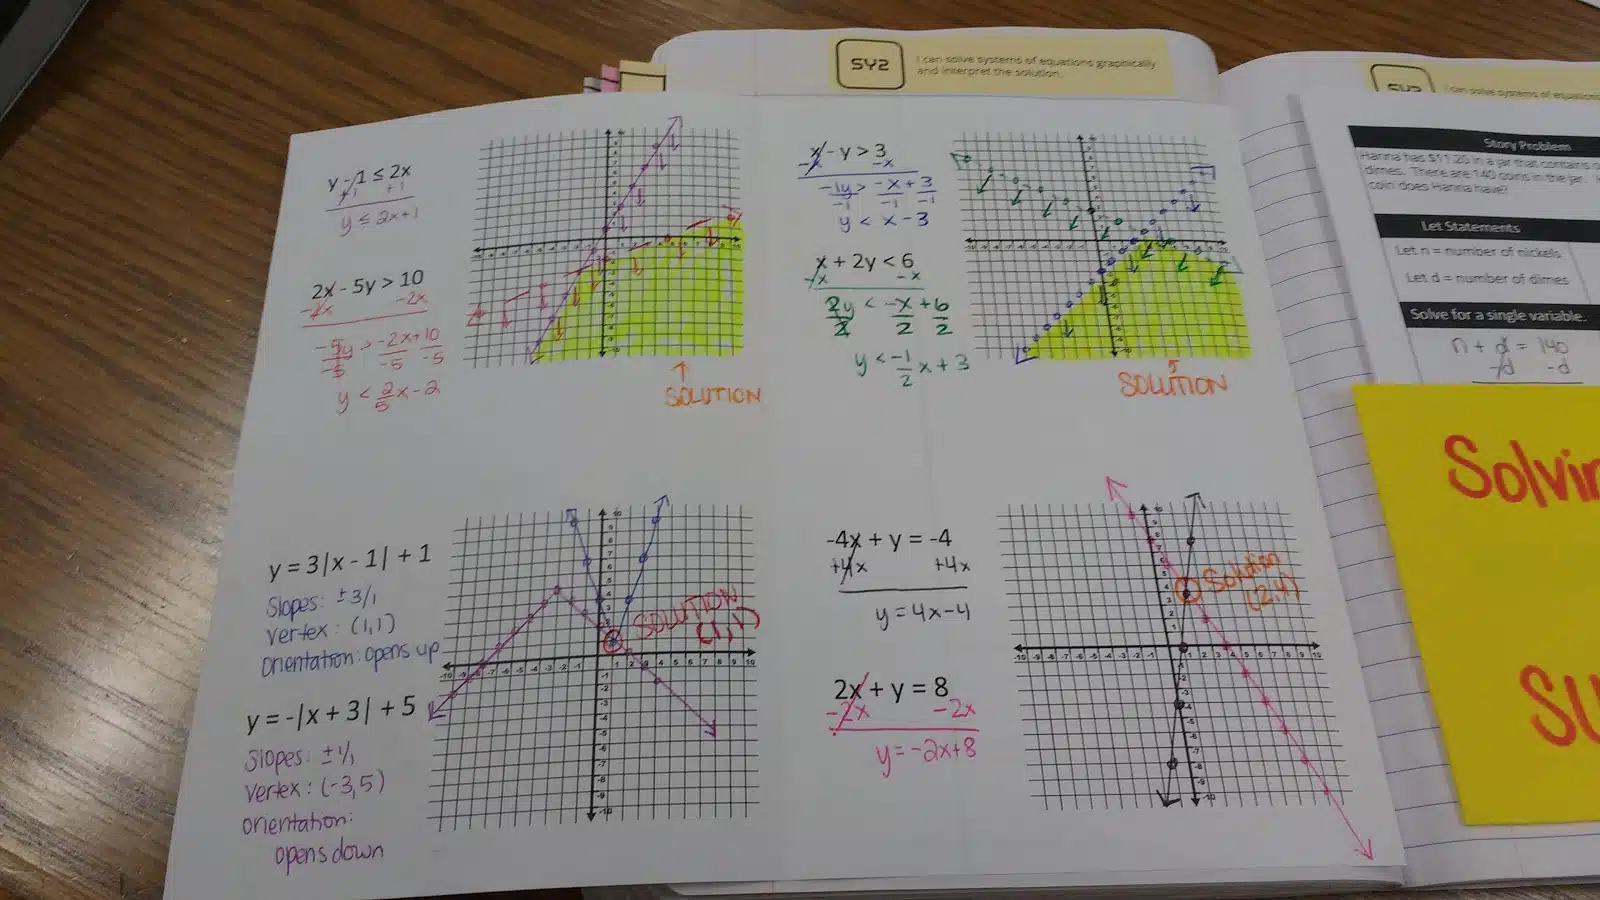 SY2
I can solve systems of equations graphically
and interpret the solution.
y - 1 ≤ 2x
+1 +1
y ≤ 2x+1
2x - 5y > 10
-2x -2x
-5y > -2x+10
-5 -5 -5
y < 2/5 x - 2
SOLUTION
x - y > 3
-x -x
-1y > -x + 3
-1 -1 -1
y < x - 3
x + 2y < 6
-x -x
2y < -x + 6
2 2 2
y < -1/2 x + 3
SOLUTION
y = 3|x - 1| + 1
Slopes: ± 3/1
vertex: (1,1)
orientation: opens up
y = -|x + 3| + 5
Slopes: ± 1/1
vertex: (-3,5)
orientation:
opens down
SOLUTION
(1,1)
-4x + y = -4
+4x +4x
y = 4x-4
2x + y = 8
-2x -2x
y = -2x+8
Solution
(2,4)
SY2
I can solve systems of equations
Story Problem
Hanna has $11.20 in a jar that contains
dimes. There are 140 coins in the jar.
coin does Hanna have?
Let Statements
Let n = number of nickels
Let d = number of dimes
Solve for a single variable.
n + d = 140
-d -d